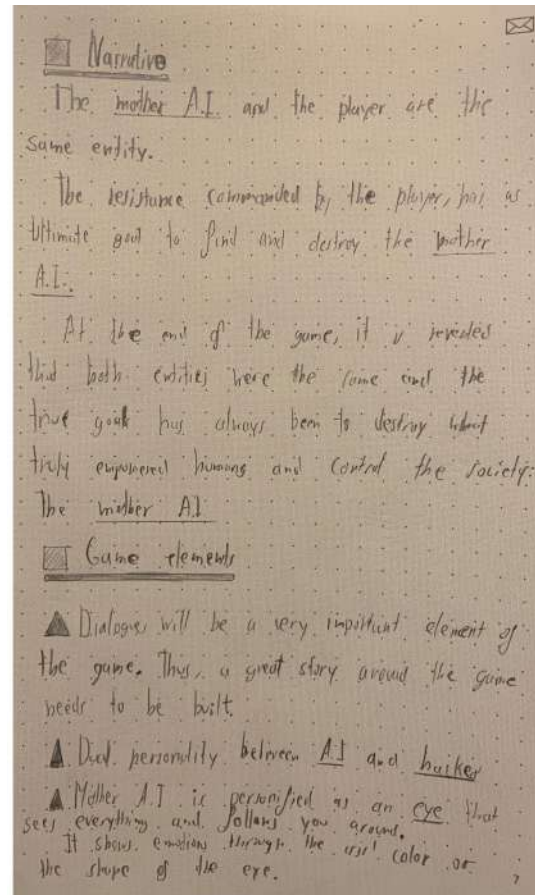 Narrative
The mother A.I. and the player are the
same entity.
The resistance commanded by the player, has as
ultimate goal to find and destroy the mother
A.I.
At the end of the game, it is revealed
that both entities were the same and the
true goal has always been to destroy what
truly empowered humans and control the society:
The mother A.I
Game elements
Dialogue will be a very important element of
the game. Thus, a great story around the game
needs to be built.
Dual personality between A.I and hacker
Mother A.I is personified as an eye that
sees everything and follows you around.
It shows emotions through the color or
the shape of the eye.